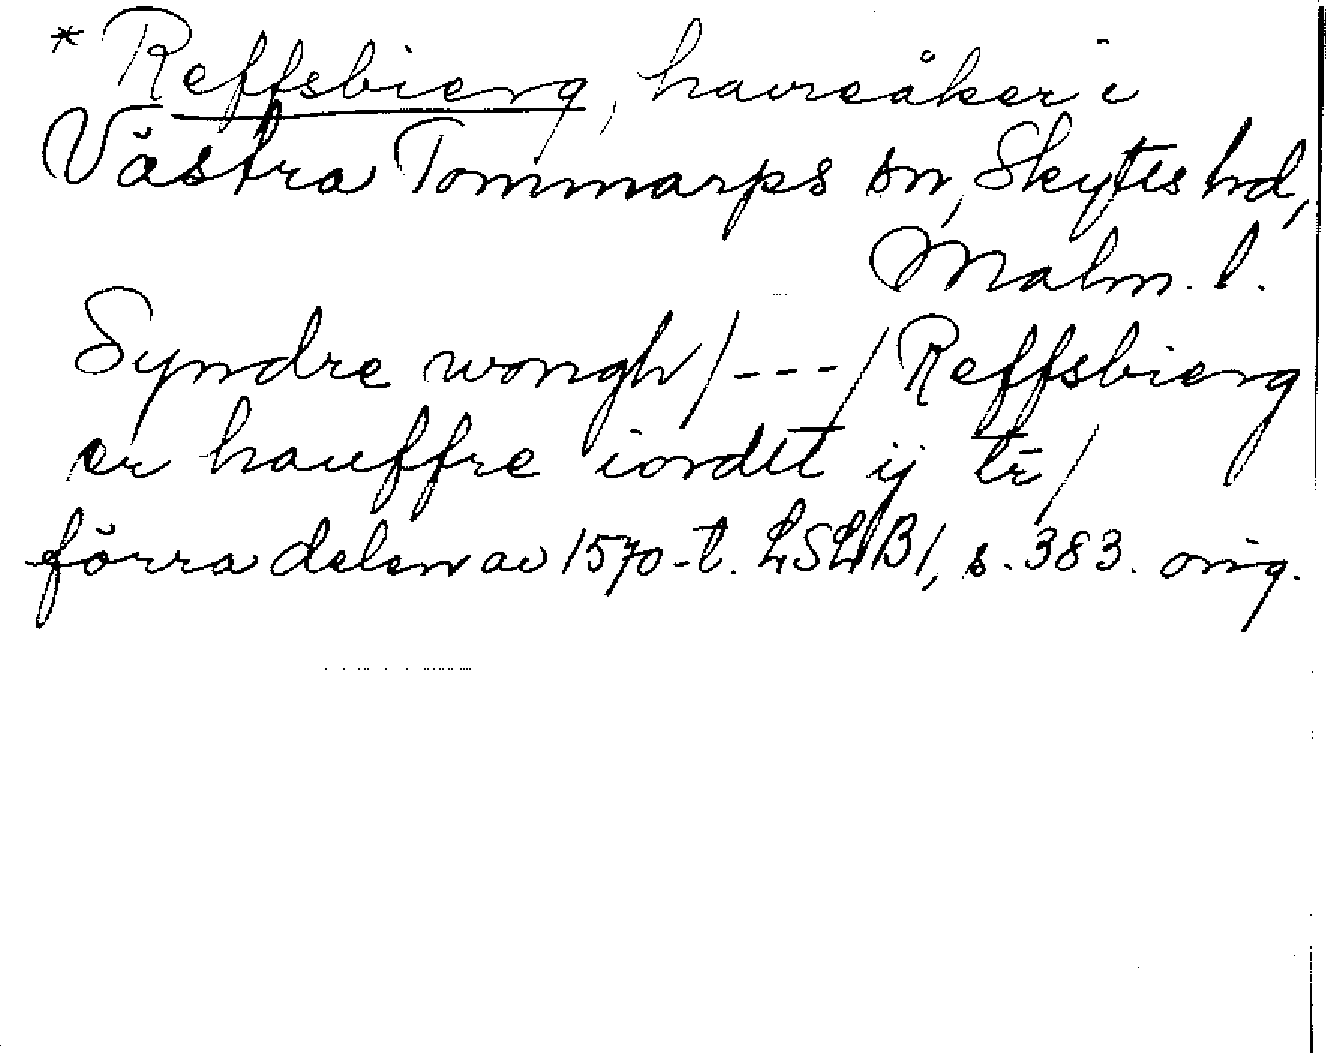 * Reffsbierg, havreåker i
Västra Tommarps sn, Skytts hd,
Malm. l.
Syndre wongh/---/Reffsbierg
er hauffre iordet ij tr̄/
förra delen av 1570-t. LSLB1, s. 383. orig.